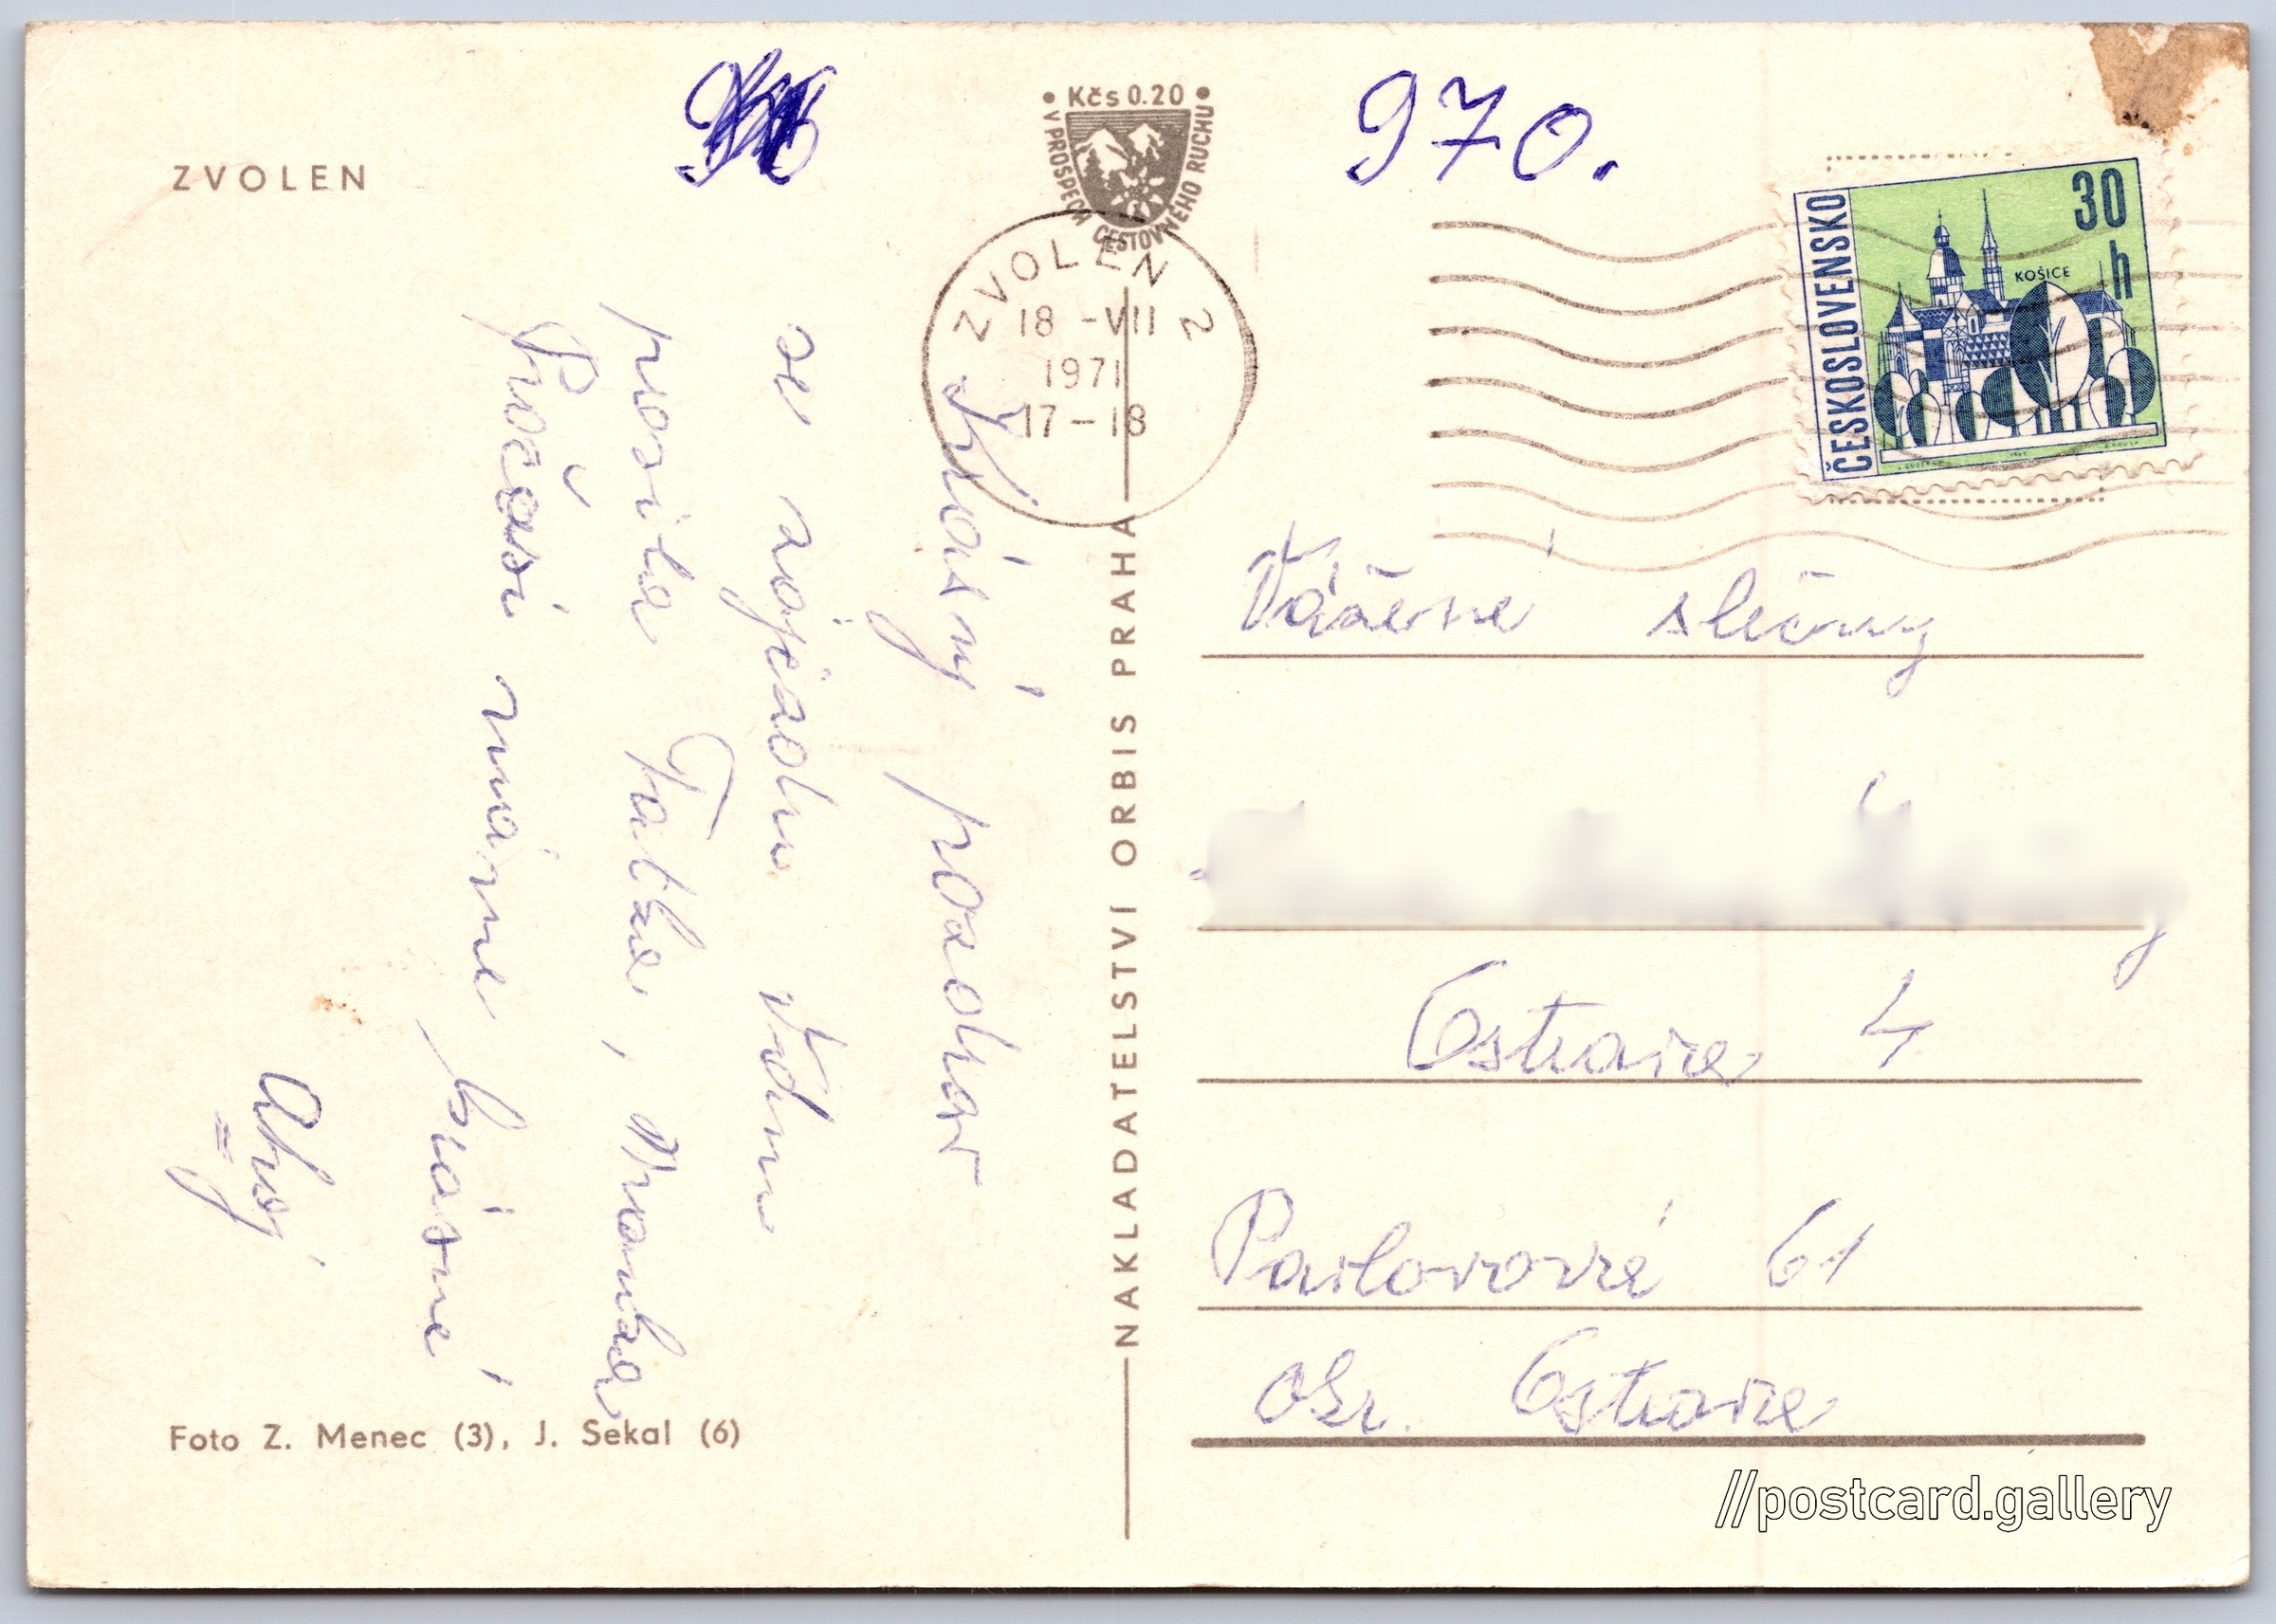 ZVOLEN
• Kčs 0.20 •
V PROSPĚCH CESTOVNÉHO RUCHU
970.
ZVOLEN 2
18 -VII
1971
17-18
ČESKOSLOVENSKO
30
h
KOŠICE
Krásný pozdrav
se zájezdu Vám
posila Tatka, Mamka
Počasi máme krásné
Ahoj
NAKLADATELSTVÍ ORBIS PRAHA
Vážené slečny
Ostrava 4
Pavlovova 61
okr. Ostrava
Foto Z. Menec (3), J. Sekal (6)
//postcard.gallery